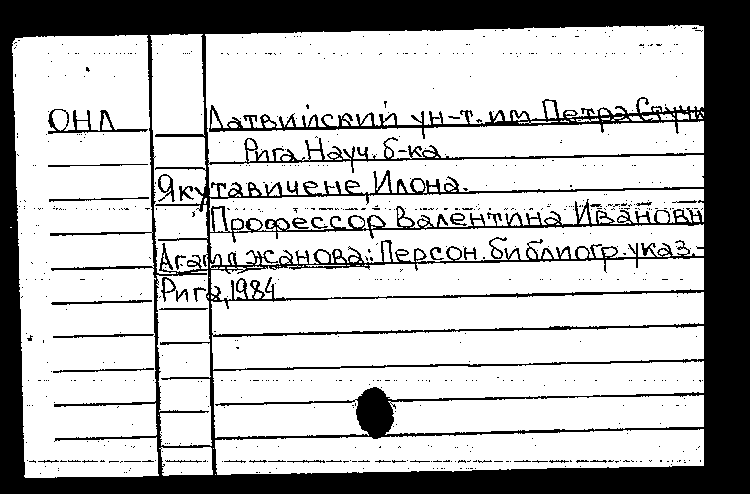 ОНЛ Латвийский ун-т. им Петра Стучк
Рига. Науч. б-ка.
Якутавичене, Илона.
Профессор Валентина Ивановн
Агаджанова: Персон. библиогр. указ.-
Рига, 1984